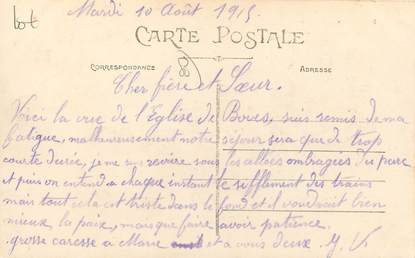 lot
Mardi 10 Août 1915
CARTE POSTALE
80
CORRESPONDANCE
ADRESSE
Cher frère et Sœur.
Voici la vue de l'Eglise de Boves, suis remis de ma
fatigue, malheureusement notre séjour sera que de trop
courte durée, je me revoire sous les allées ombragés du parc
et puis on entend a chaque instant le sifflement des trains
mais tout cela est triste dans le fond et il voudrait bien
mieux la paix, mais que faire avoir patience.
grosse caresse a Marie et a vous deux. J. V.